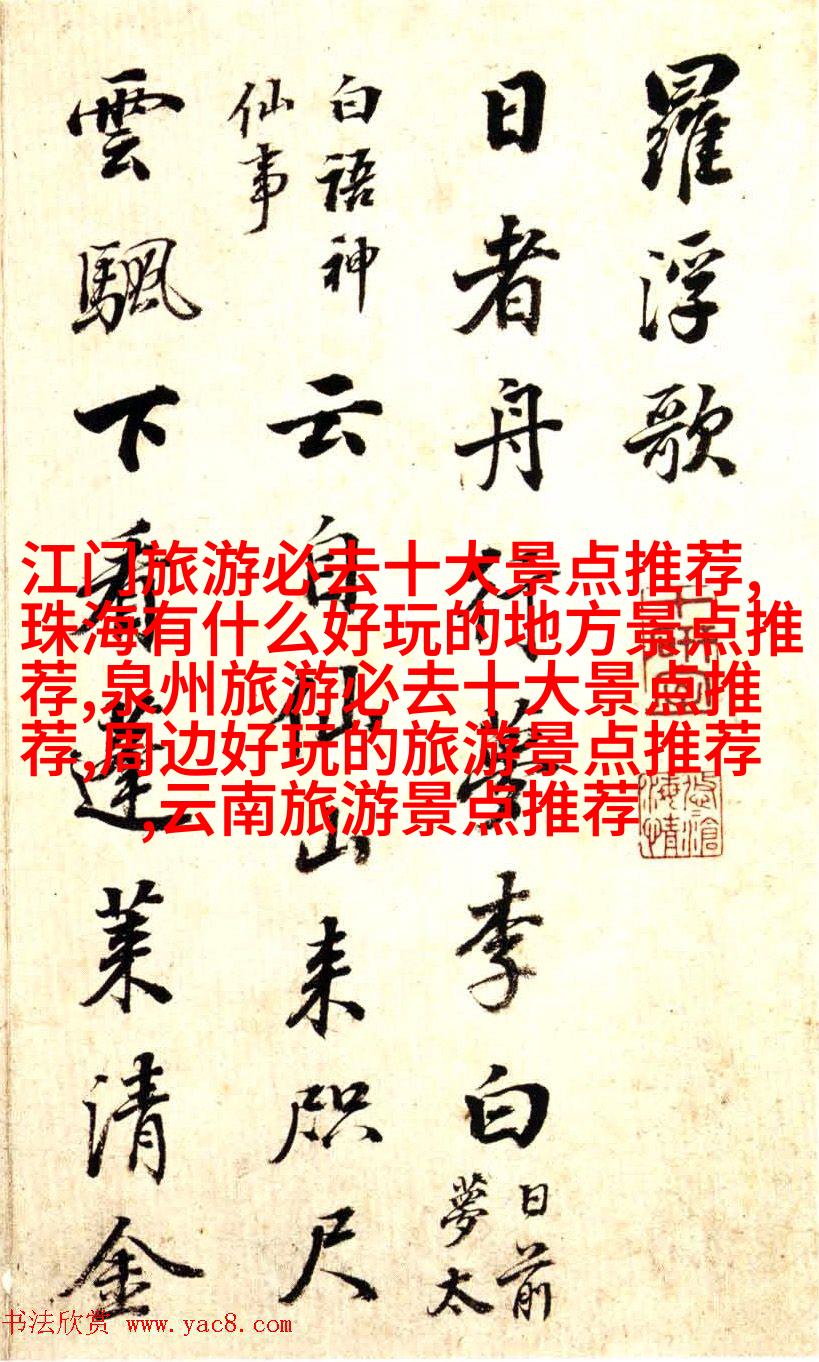 羅浮歌
日者舟行夢李白
日前
夢太
白語神
仙事
云自仙山来咫尺
雲颿下看蓬莱清金
江门旅游必去十大景点推荐,
珠海有什么好玩的地方景点推
荐,泉州旅游必去十大景点推
荐,周边好玩的旅游景点推荐
,云南旅游景点推荐
书法欣赏 www.yac8.com